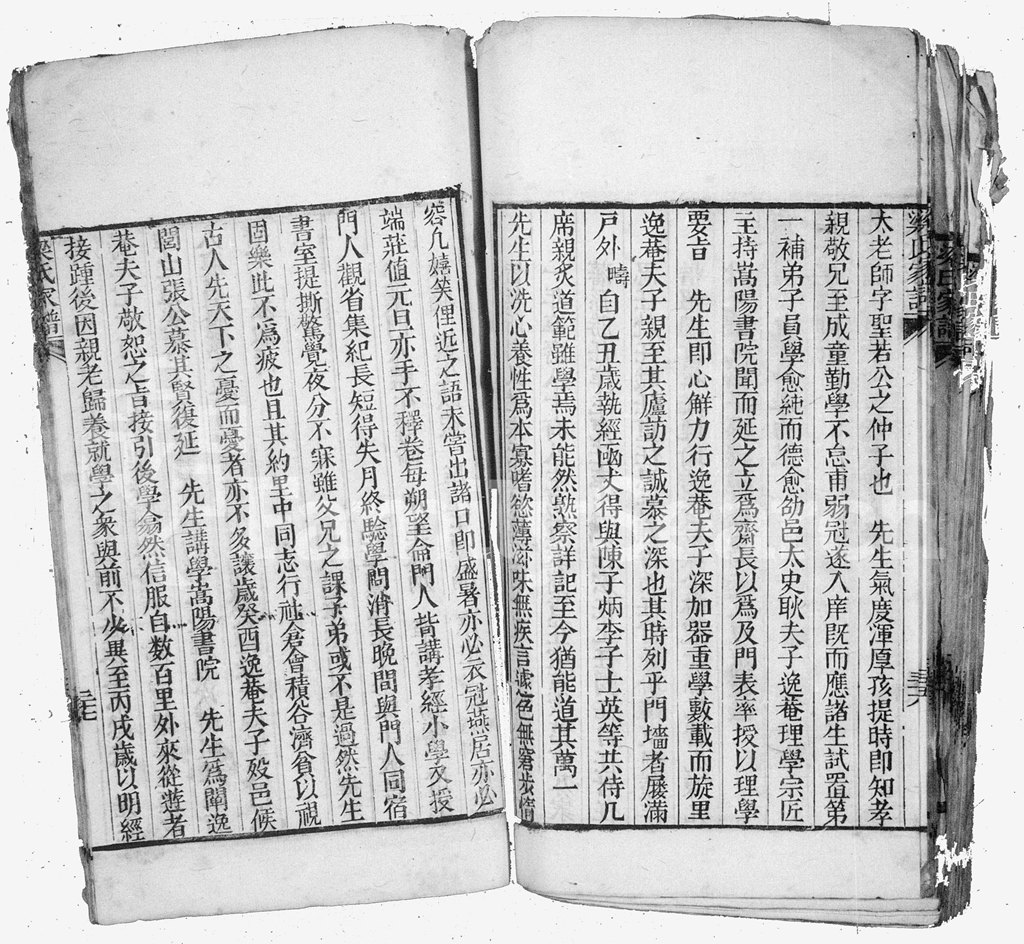 梁氏家譜
太老師字聖若公之仲子也　先生氣度渾厚孩提時即知孝
親敬兄至成童勤學不怠甫弱冠遂入庠既而應諸生試置第
一補弟子員學愈純而德愈劭邑太史耿夫子逸菴理學宗匠
主持嵩陽書院聞而延之立爲齋長以爲及門表率授以理學
要旨　先生即心解力行逸菴夫子深加器重學數載而旋里
逸菴夫子親至其廬訪之誠慕之深也其時列乎門墻者屨滿
戶外　疇自乙丑歲執經函丈得與陳子炳李子士英等共侍几
席親炙道範雖學焉未能然熟察詳記至今猶能道其萬一
先生以洗心養性爲本寡嗜慾薄滋味無疾言遽色無窘步惰
容凡嬉笑俚近之語未嘗出諸口即盛暑亦必衣冠燕居亦必
端莊值元旦亦手不釋卷每朔望命門人背講孝經小學又授
門人觀省集紀長短得失月終驗學問消長晚間與門人同宿
書室提撕警覺夜分不寐雖父兄之課子弟或不是過然先生
固樂此不爲疲也且其約里中同志行社倉會積谷濟貧以視
古人先天下之憂而憂者亦不多讓歲癸酉逸菴夫子殁邑候
閻山張公慕其賢復延　先生講學嵩陽書院　先生爲闡逸
菴夫子敬恕之旨接引後學翕然信服自数百里外來從遊者
接踵後因親老歸養就學之衆與前不少異至丙戌歲以明經
梁氏家譜